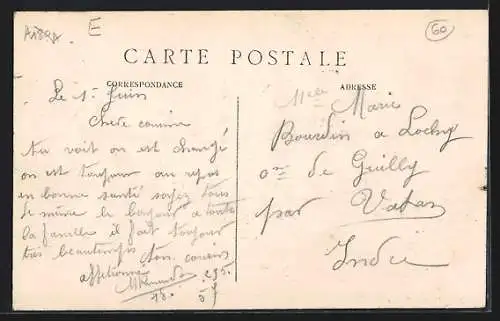 A1892
E
60
CARTE POSTALE
CORRESPONDANCE
ADRESSE
Le 1er Juin
Chere cousine
Tu voit on est changé
on est toujour au repos
en bonne santé soyez tous
de même le bonjour a toute
la famille il fait toujour
très beautemps ton cousin
affetionné
Melle Marie
Bourdin a Lochy
cne de Guilly
par Vatan
Indre